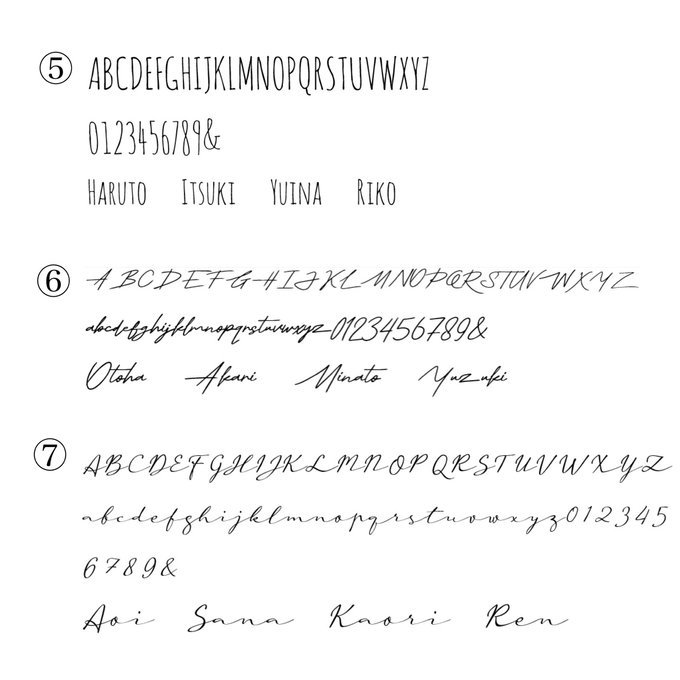 ⑤ ABCDEFGHIJKLMNOPQRSTUVWXYZ
0123456789&
HARUTO ITSUKI YUINA RIKO
⑥ ABCDEFGHIJKLMNOPQRSTUVWXYZ
abcdefghijklmnopqrstuvwxyz0123456789&
Otoha Akari Minato Yuzuki
⑦ ABCDEFGHIJKLMNOPQRSTUVWXYZ
abcdefghijklmnopqrstuvwxyz012345
6789&
Aoi Sana Kaori Ren